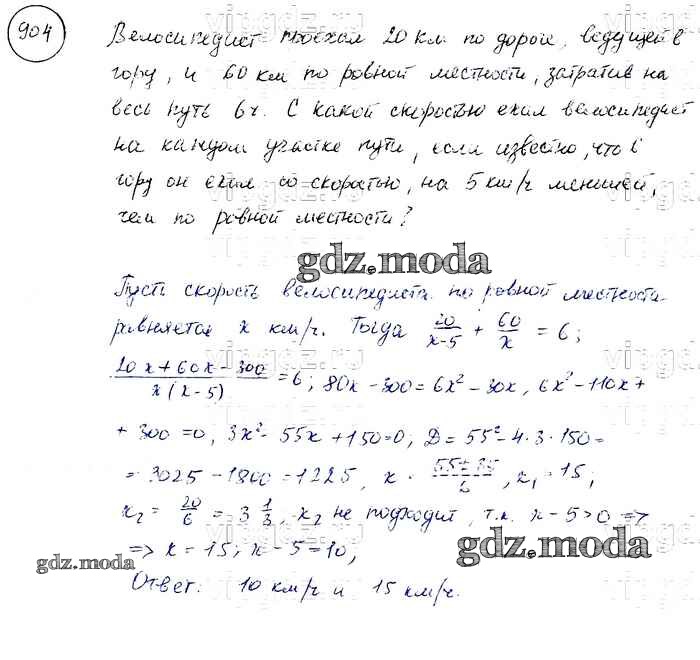 904
Велосипедист проехал 20 км по дороге, ведущей в
гору, и 60 км по ровной местности, затратив на
весь путь 6 ч. С какой скоростью ехал велосипедист
на каждом участке пути, если известно, что в
гору он ехал со скоростью, на 5 км/ч меньшей,
чем по ровной местности?
gdz.moda
Пусть скорость велосипедиста по ровной местности
равняется x км/ч. Тогда 20/(x-5) + 60/x = 6;
(20x+60x-300)/(x(x-5)) = 6; 80x-300=6x²-30x, 6x²-110x+
+300=0, 3x²-55x+150=0, D=55²-4·3·150=
=3025-1800=1225, x = (55±35)/6, x₁=15;
x₂ = 20/6 = 3 1/3, x₂ не подходит, т.к. x-5>0 =>
=> x=15; x-5=10;
gdz.moda
gdz.moda
Ответ: 10 км/ч и 15 км/ч.